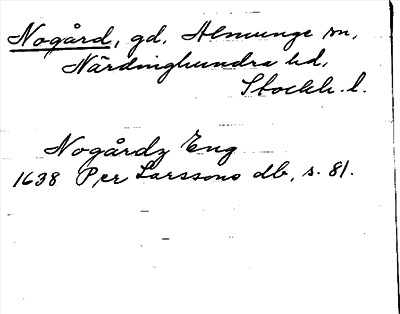 Nogård, gd, Almunge sn,
Närdinghundra hd,
Stockh. l.
Nogårdz Eng
1638 Per Larssons db, s. 81.